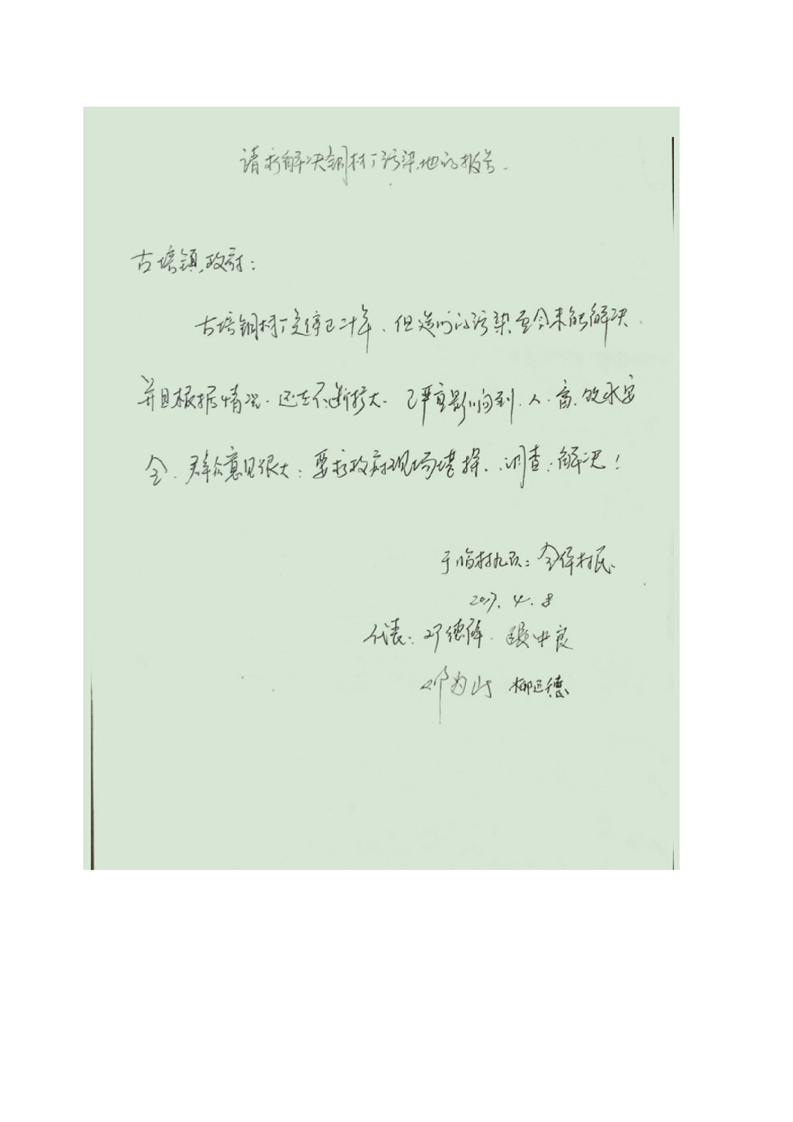 请求解决铜材厂污染地的报告.
古培镇政府：
古培铜材厂关停已二十年，但造成的污染至今未能解决
并且根据情况，还在不断扩大，已严重影响到，人、畜、饮水安
全，群众意见很大：要求政府现场，调查，解决！
村九队：全体村民
2017.4.8
代表：邓德 张中良
邓为山 柳运德